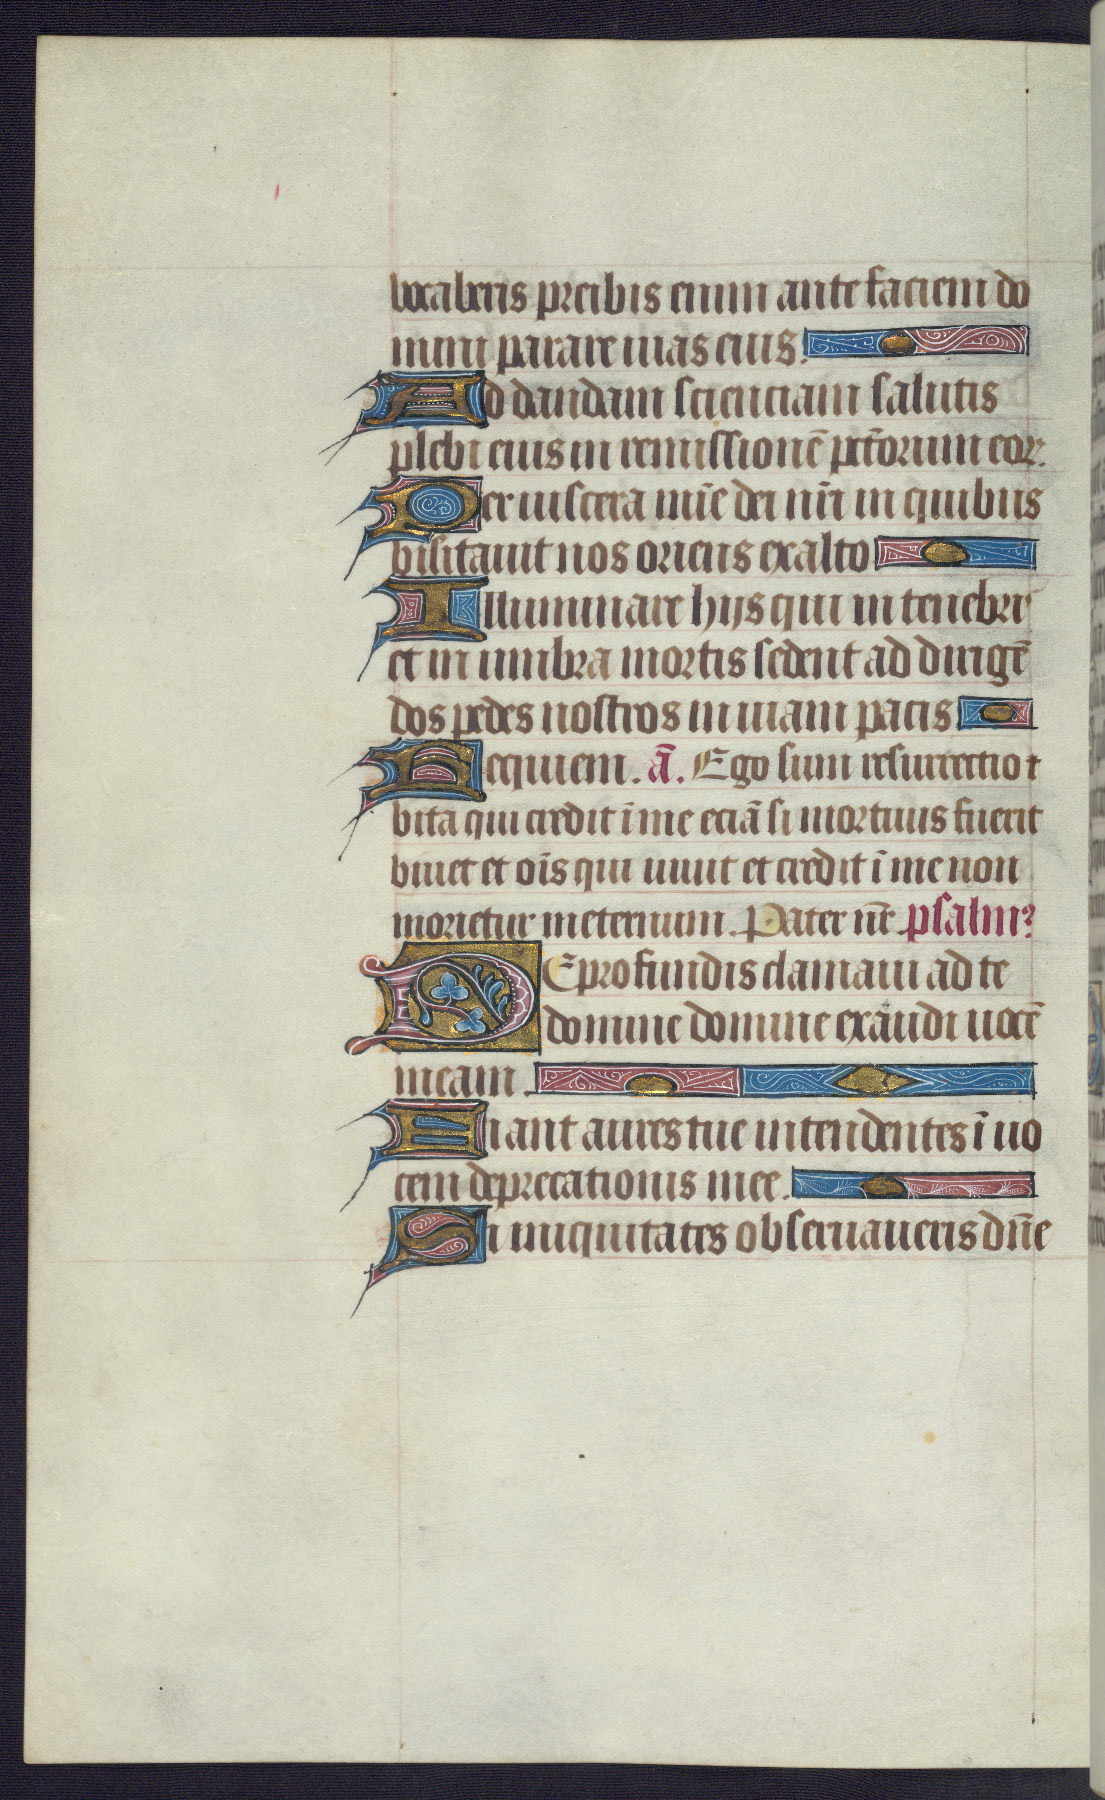 vocaberis preibis enim ante faciem do
mini parare uias eius.
Ad dandam scienciam salutis
plebi eius in remissionē pctōrum eor
Per uiscera mīe dei nrī in quibus
visitauit nos oriens exalto
Illuminare hijs qui in tenebris
et in umbra mortis sedent ad dirigē
dos pedes nostros in uiam pacis
Requiem. ā. Ego sum resurrectio ⁊
vita qui credit ī me eciā si mortuus fuerit
viuet et oīs qui uiuit et credit ī me non
morietur ineternum. Pater nr̄. psalm⁹
DE profundis clamaui ad te
domine domine exaudi uocē
meam.
Fiant aures tue intendentes ī uo
cem deprecationis mee.
Si iniquitates obseruaueris dn̄e